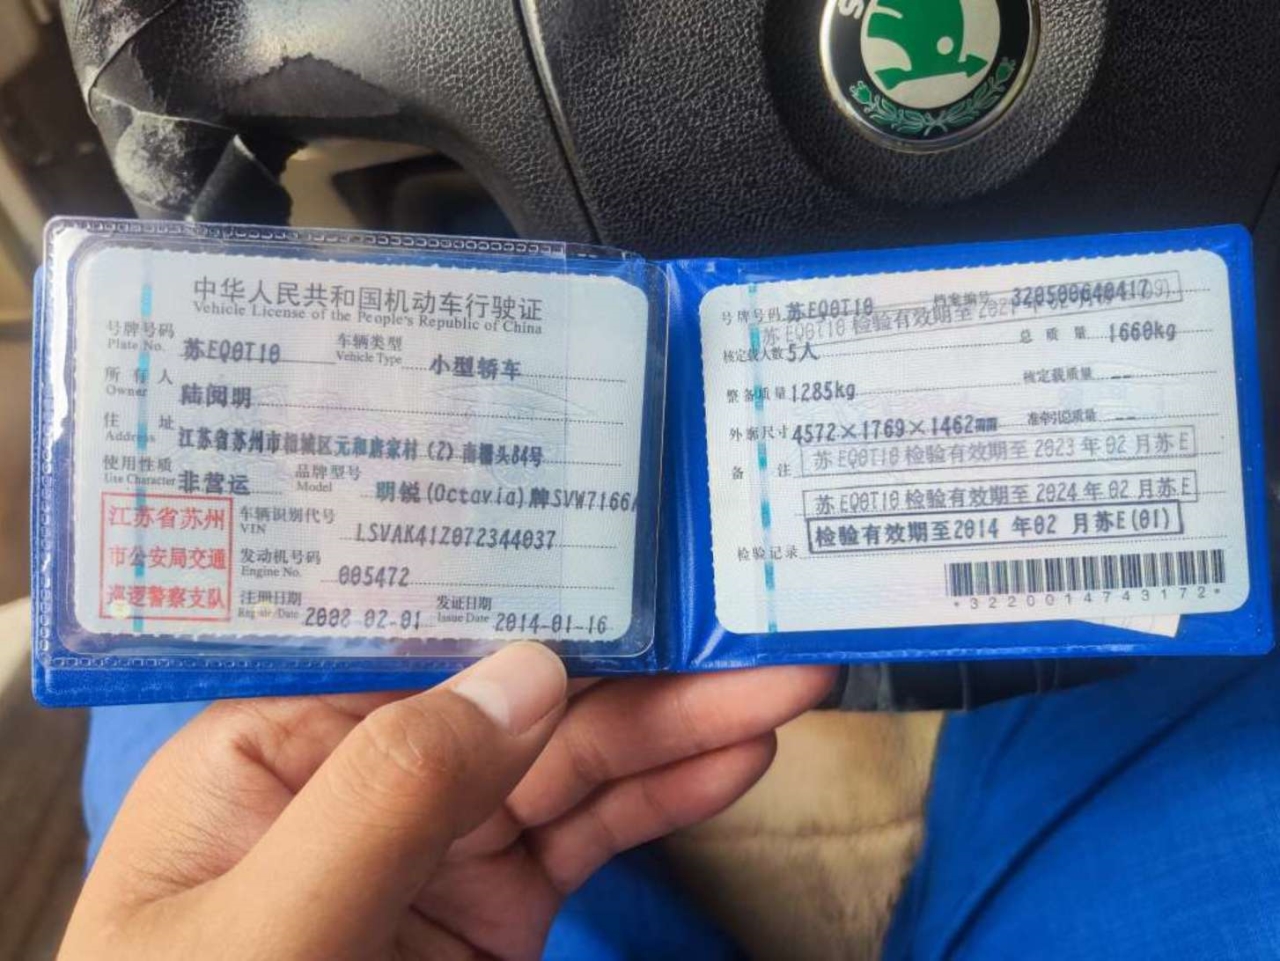 中华人民共和国机动车行驶证
Vehicle License of the People's Republic of China
号牌号码 苏EQ0T10 车辆类型 小型轿车
Plate No. Vehicle Type
所有人 陆阅明
Owner
住址 江苏省苏州市相城区元和唐家村(2)南栅头84号
Address
使用性质 非营运 品牌型号 明锐(Octavia)牌SVW7166
Use Character Model
江苏省苏州
市公安局交通
巡逻警察支队
车辆识别代号 LSVAK41Z072344037
VIN
发动机号码 005472
Engine No.
注册日期 2008-02-01 发证日期 2014-01-16
Register Date Issue Date
号牌号码 苏EQ0T10 档案编号 320500640417
苏EQ0T10 检验有效期至
核定载人数 5人 总质量 1660kg
整备质量 1285kg 核定载质量 --
外廓尺寸 4572×1769×1462mm 准牵引总质量 --
备注 苏EQ0T10 检验有效期至 2023 年 02 月苏E
苏EQ0T10 检验有效期至 2024 年 02 月苏E
检验记录 检验有效期至2014 年02 月苏E(01)
*3220014743172*